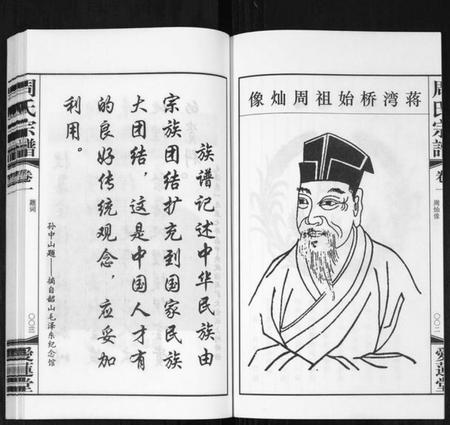 周氏宗譜
卷一
周灿像
〇〇二
愛蓮堂
蒋湾桥始祖周灿像
族谱记述中华民族由
宗族团结扩充到国家民族
大团结，这是中国人才有
的良好传统观念，应妥加
利用。
孙中山题——摘自韶山毛泽东纪念馆
周氏宗譜
卷一
题词
〇〇三
愛蓮堂